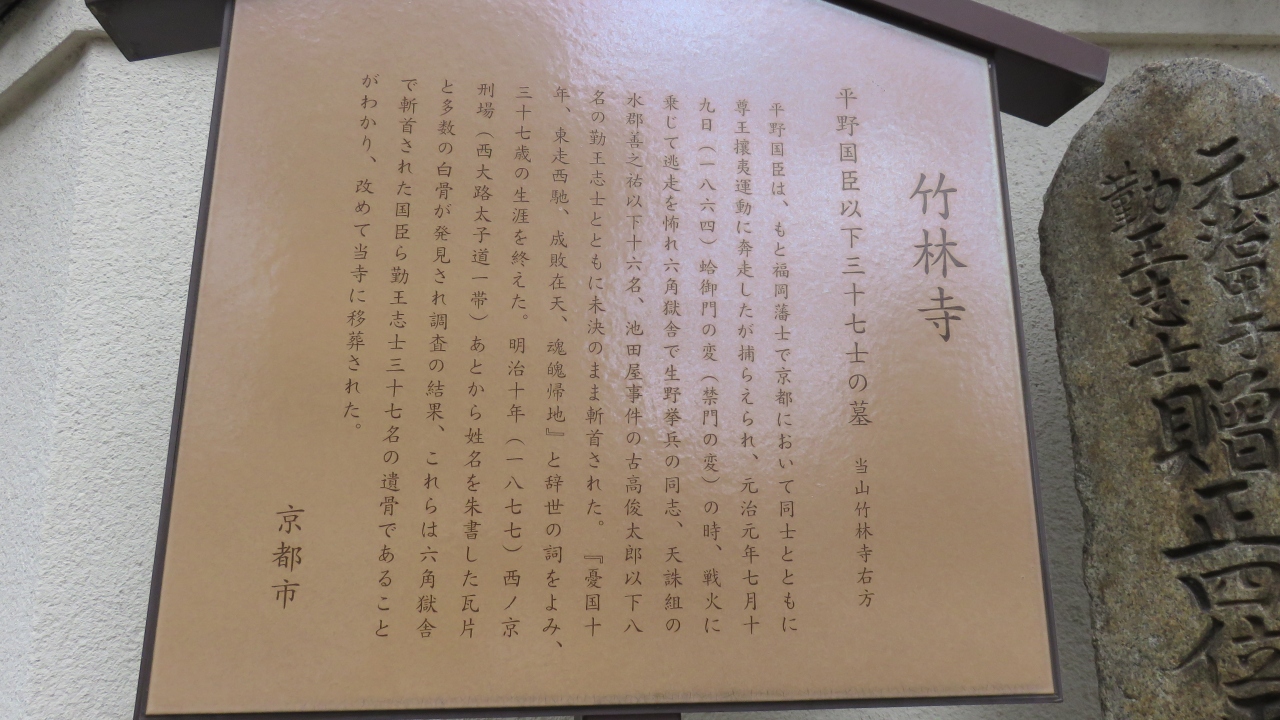 竹林寺
平野国臣以下三十七士の墓 当山竹林寺右方
平野国臣は、もと福岡藩士で京都において同士とともに
尊王攘夷運動に奔走したが捕らえられ、元治元年七月十
九日（一八六四）蛤御門の変（禁門の変）の時、戦火に
乗じて逃走を怖れ六角獄舎で生野挙兵の同志、天誅組の
水郡善之祐以下十六名、池田屋事件の古高俊太郎以下八
名の勤王志士とともに未決のまま斬首された。『憂国十
年、東走西馳、成敗在天、魂魄帰地』と辞世の詞をよみ、
三十七歳の生涯を終えた。明治十年（一八七七）西ノ京
刑場（西大路太子道一帯）あとから姓名を朱書した瓦片
と多数の白骨が発見され調査の結果、これらは六角獄舎
で斬首された国臣ら勤王志士三十七名の遺骨であること
がわかり、改めて当寺に移葬された。
京都市
元治甲子贈正四位
勤王志士